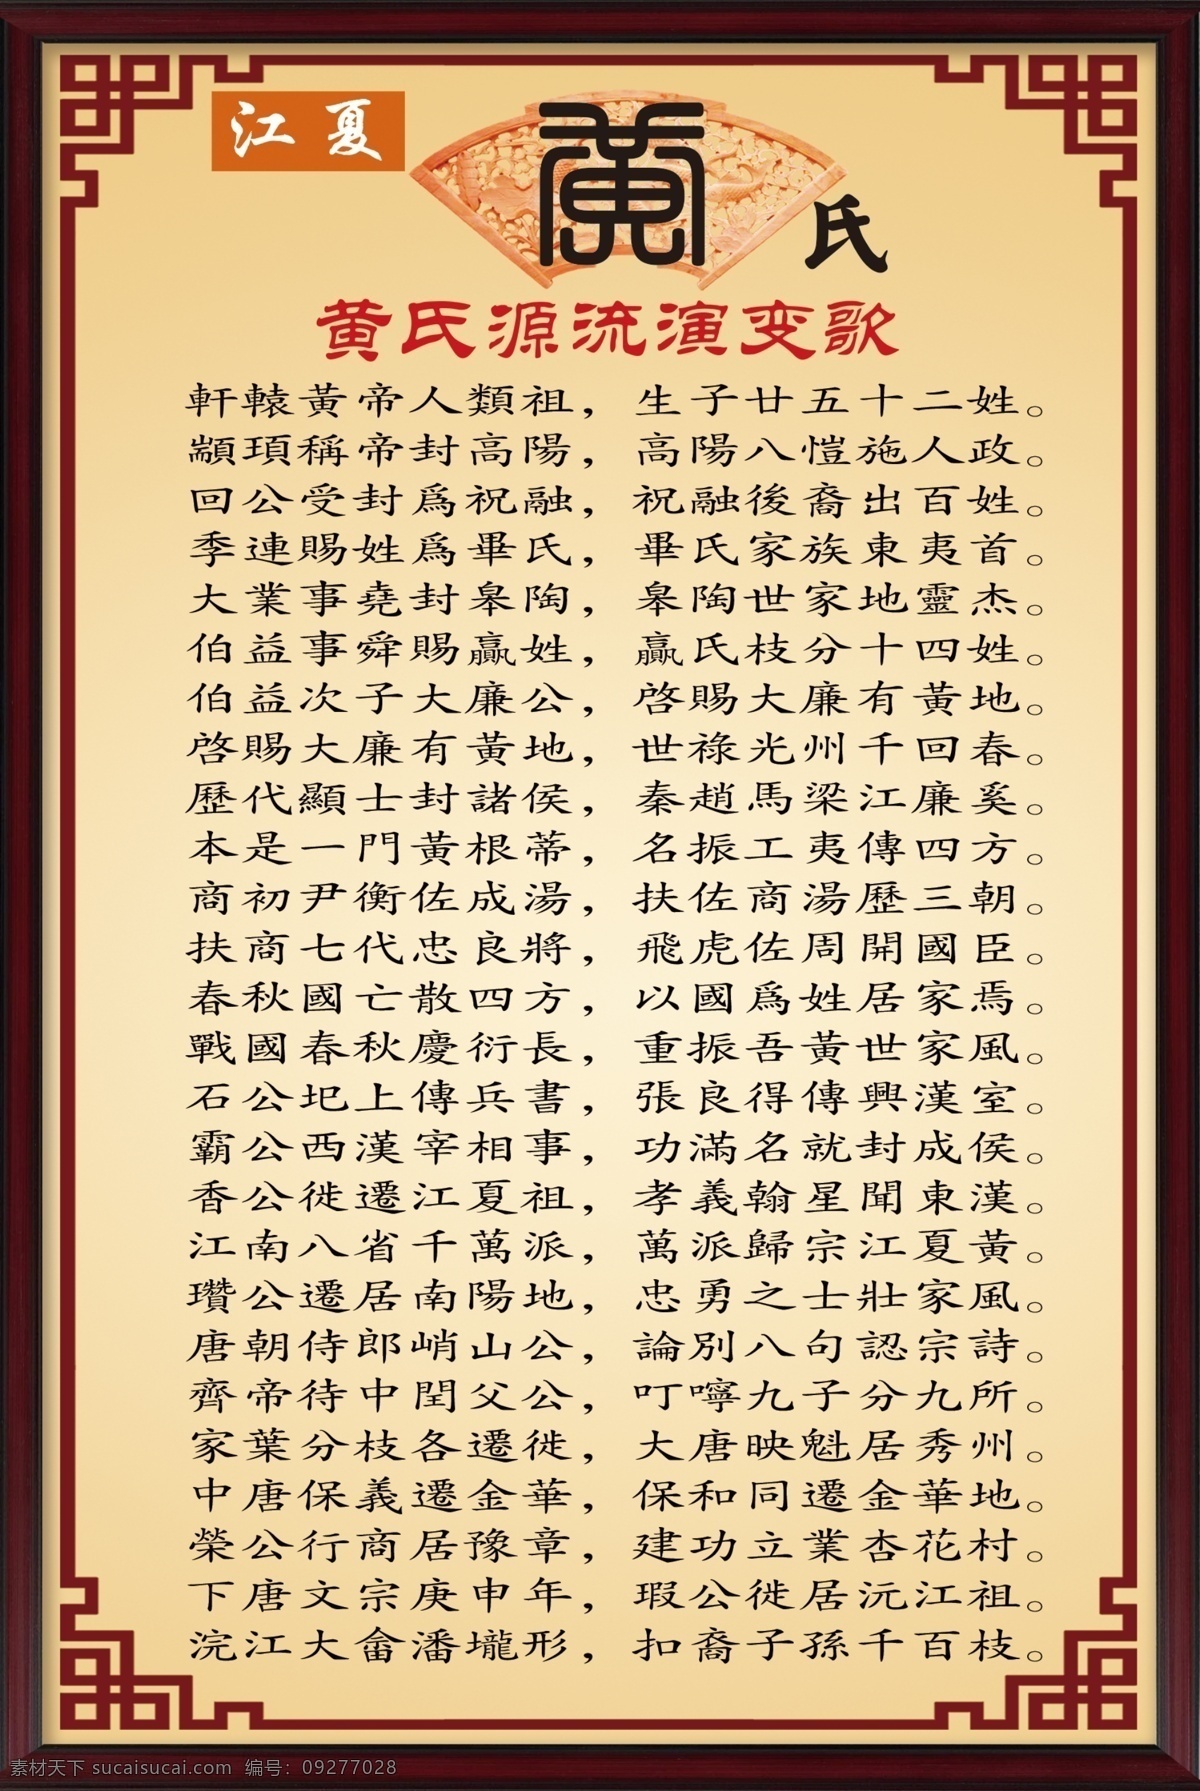 江夏
黄
氏
黄氏源流演变歌
軒轅黃帝人類祖，生子廿五十二姓。
顓頊稱帝封高陽，高陽八愷施人政。
回公受封爲祝融，祝融後裔出百姓。
季連賜姓爲畢氏，畢氏家族東夷首。
大業事堯封皋陶，皋陶世家地靈杰。
伯益事舜賜贏姓，贏氏枝分十四姓。
伯益次子大廉公，啓賜大廉有黃地。
啓賜大廉有黃地，世祿光州千回春。
歷代顯士封諸侯，秦趙馬梁江廉奚。
本是一門黃根蒂，名振工夷傳四方。
商初尹衡佐成湯，扶佐商湯歷三朝。
扶商七代忠良將，飛虎佐周開國臣。
春秋國亡散四方，以國爲姓居家焉。
戰國春秋慶衍長，重振吾黃世家風。
石公圯上傳兵書，張良得傳興漢室。
霸公西漢宰相事，功滿名就封成侯。
香公徙遷江夏祖，孝義翰星聞東漢。
江南八省千萬派，萬派歸宗江夏黃。
瓚公遷居南陽地，忠勇之士壯家風。
唐朝侍郎峭山公，論別八句認宗詩。
齊帝待中閏父公，叮嚀九子分九所。
家葉分枝各遷徙，大唐映魁居秀州。
中唐保義遷金華，保和同遷金華地。
榮公行商居豫章，建功立業杏花村。
下唐文宗庚申年，瑕公徙居沅江祖。
浣江大畲潘壠形，扣裔子孫千百枝。
素材天下 sucaisucai.com 编号：09277028